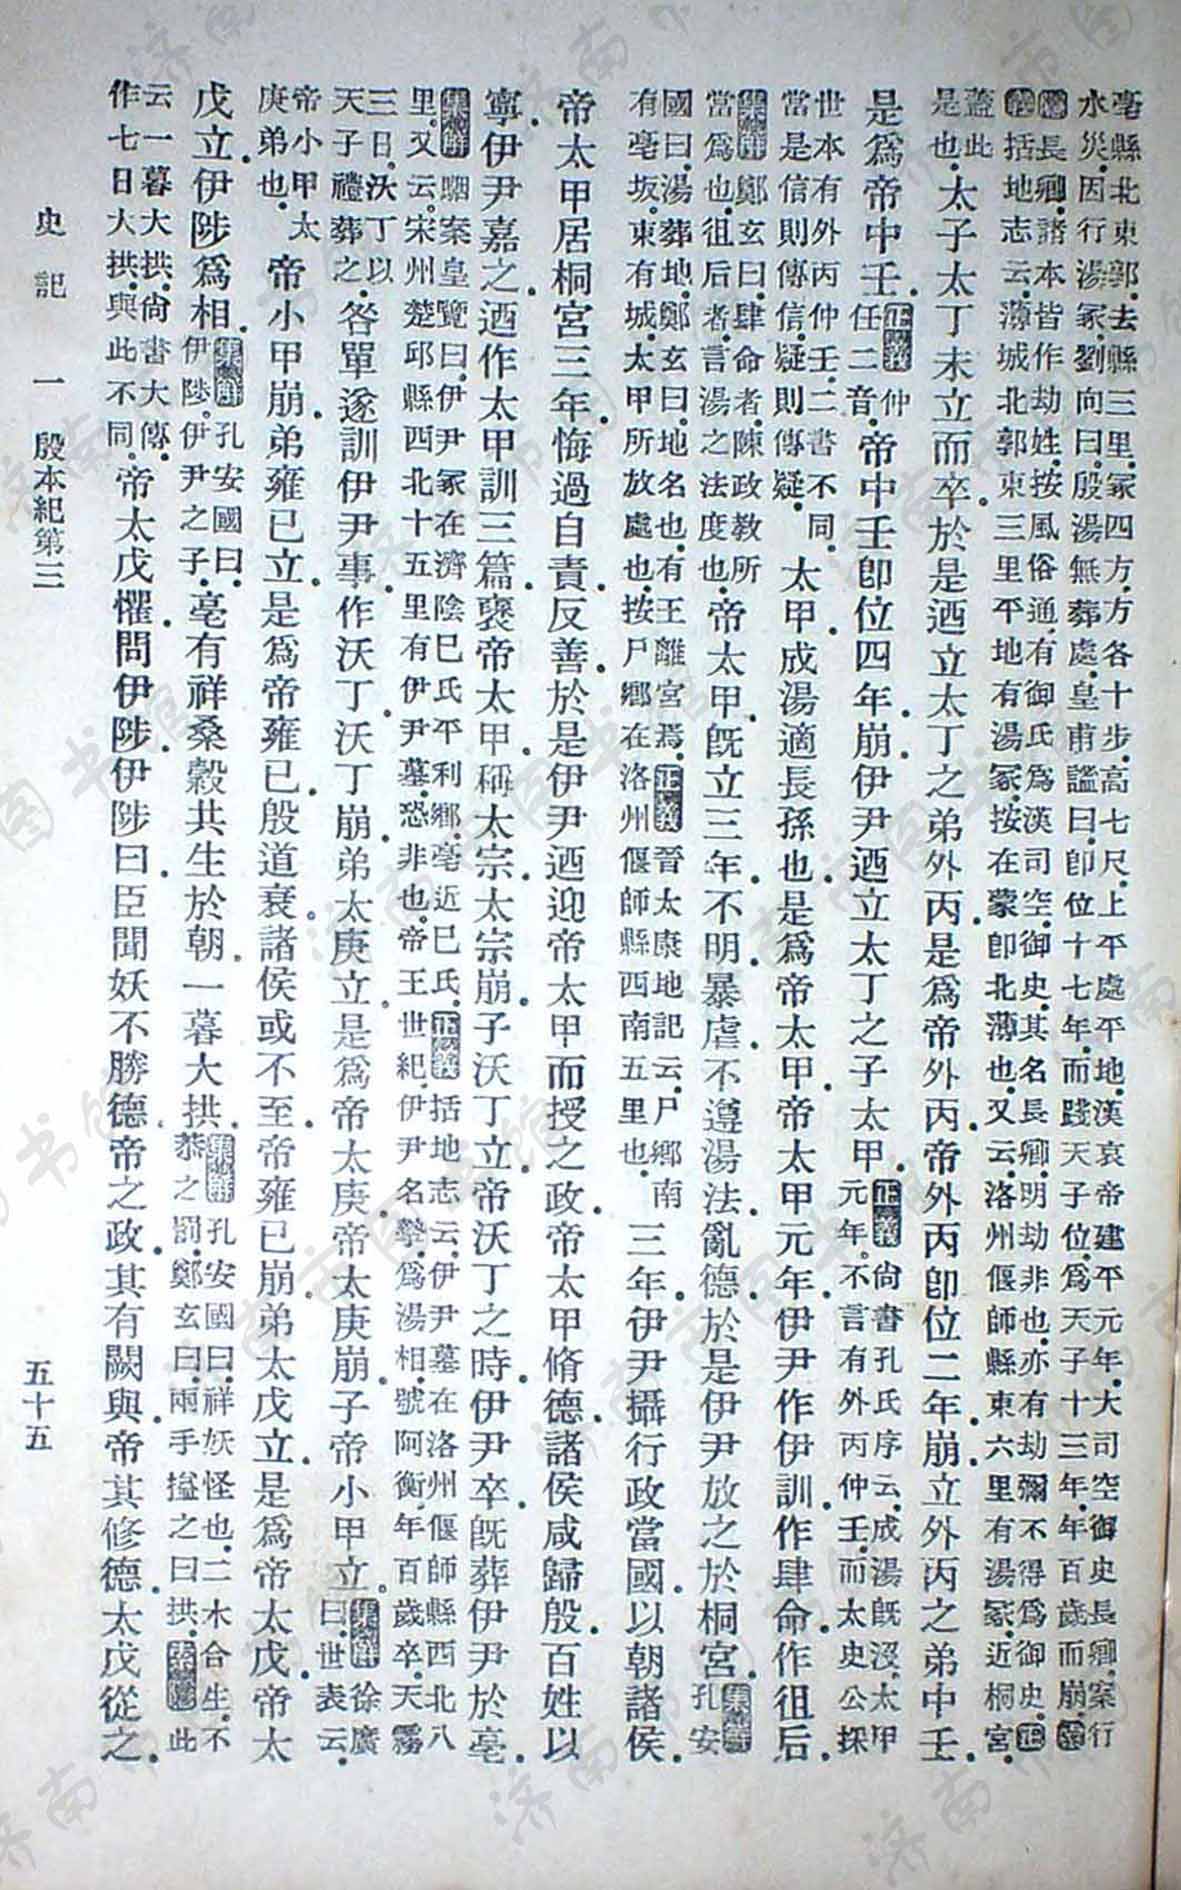 亳縣北東郭.去縣三里.冢四方.方各十步.高七尺.上平.處平地.漢哀帝建平元年.大司空御史長卿.案行水災.因行湯冢.劉向曰.殷湯無葬處.皇甫謐曰.卽位十七年.而踐天子位.爲天子十三年.年百歲而崩.索
隱長卿.諸本皆作劫姓.按風俗通.有御氏爲漢司空御史.其名長卿.明劫非也.亦有劫彌不得爲御史.正義括地志云.薄城北郭東三里平地有湯冢.按在蒙卽北薄也.又云.洛州偃師縣東六里有湯冢.近桐宮.
蓋此是也.太子太丁未立而卒.於是迺立太丁之弟外丙.是爲帝外丙.帝外丙卽位二年.崩.立外丙之弟中壬.
是爲帝中壬.正義仲任二音.帝中壬卽位四年.崩.伊尹迺立太丁之子太甲.正義尙書孔氏序云.成湯旣沒.太甲元年.不言有外丙仲壬.而太史公採
世本有外丙仲壬.二書不同.當是信則傳信.疑則傳疑.太甲.成湯適長孫也.是爲帝太甲.帝太甲元年.伊尹作伊訓.作肆命.作徂后.
集解鄭玄曰.肆命者.陳政教所當爲也.徂后者.言湯之法度也.帝太甲.旣立三年.不明.暴虐.不遵湯法.亂德.於是伊尹放之於桐宮.集解孔安
國曰.湯葬地.鄭玄曰.地名也.有王離宮焉.正義晉太康地記云.尸鄉南有亳坂.東有城.太甲所放處也.按尸鄉在洛州偃師縣西南五里也.三年.伊尹攝行政當國.以朝諸侯.
帝太甲居桐宮三年.悔過自責.反善.於是伊尹迺迎帝太甲而授之政.帝太甲脩德.諸侯咸歸殷.百姓以
寧.伊尹嘉之.迺作太甲訓三篇.襃帝太甲.稱太宗.太宗崩.子沃丁立.帝沃丁之時.伊尹卒.旣葬伊尹於亳.
集解駰案皇覽曰.伊尹冢在濟陰巳氏平利鄉.亳近巳氏.正義括地志云.伊尹墓在洛州偃師縣西北八里.又云.宋州楚邱縣西北十五里有伊尹墓.恐非也.帝王世紀.伊尹名摯.爲湯相.號阿衡.年百歲卒.天霧
三日.沃丁以天子禮葬之.咎單遂訓伊尹事.作沃丁.沃丁崩.弟太庚立.是爲帝太庚.帝太庚崩.子帝小甲立.集解徐廣曰.世表云.
帝小甲太庚弟也.帝小甲崩.弟雍已立.是爲帝雍已.殷道衰.諸侯或不至.帝雍已崩.弟太戊立.是爲帝太戊.帝太
戊立.伊陟爲相.集解孔安國曰.伊陟.伊尹之子.亳有祥桑穀共生於朝.一暮大拱.集解孔安國曰.祥妖怪也.二木合生.不恭之罰.鄭玄曰.兩手搤之曰拱.索隱此
云一暮大拱.尙書大傳.作七日大拱.與此不同.帝太戊懼.問伊陟.伊陟曰.臣聞妖不勝德.帝之政.其有闕與.帝其修德.太戊從之.
史記 一 殷本紀第三 五十五